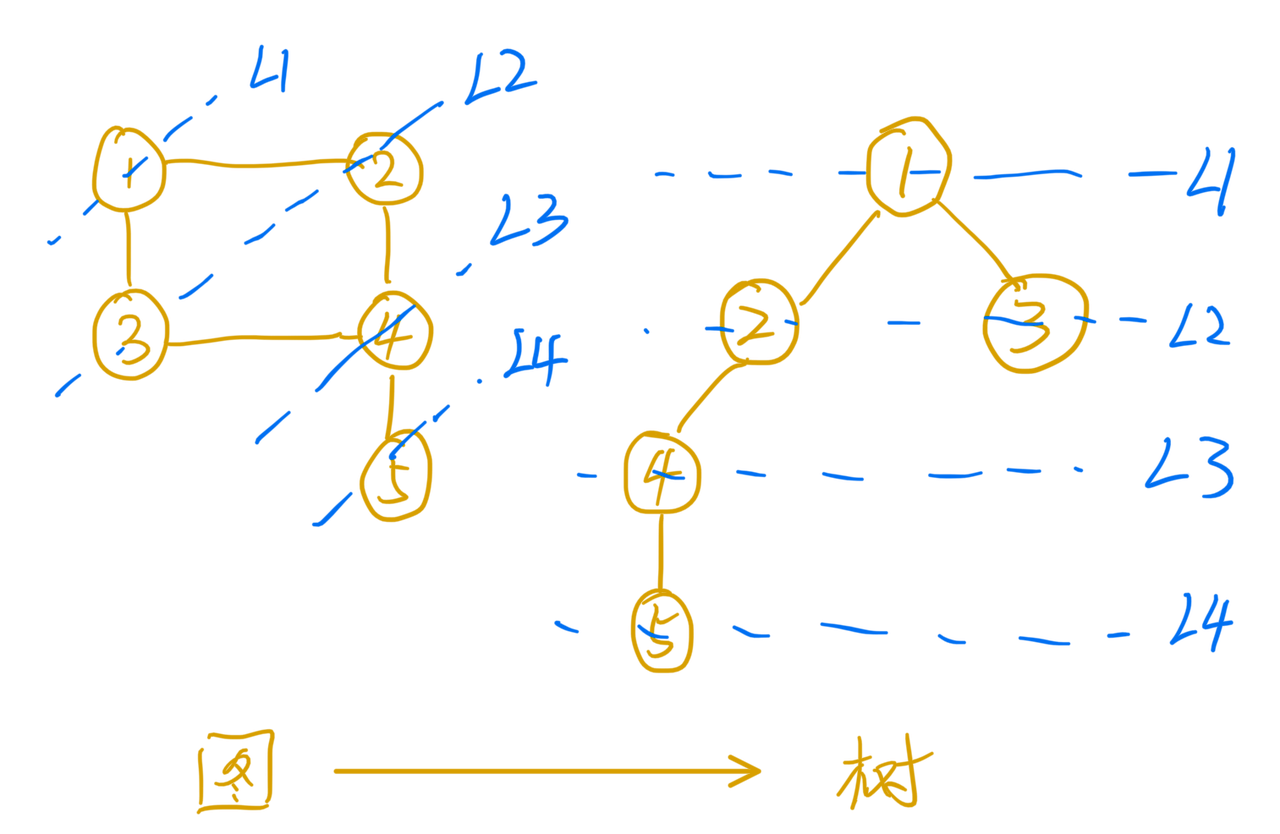 L1
L2
1
2
L3
3
4
L4
5
1
L1
2
3
L2
4
L3
5
L4
图
树